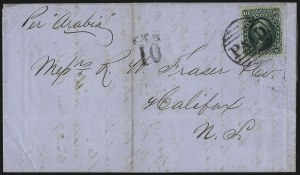 Per "Arabia"
CTS
10
Messrs R. W. Fraser & Co.
Halifax
N. S.
PAID